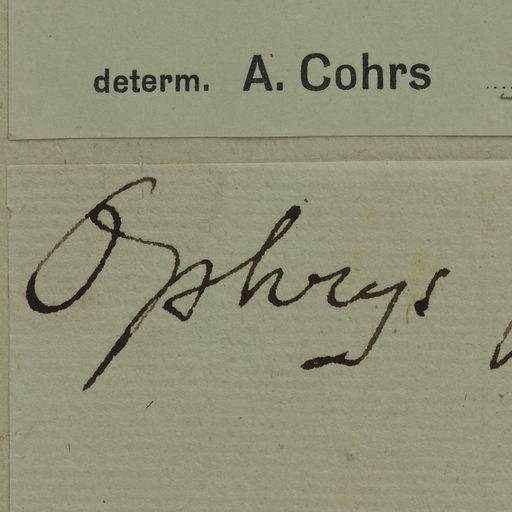 determ. A. Cohrs
Ophrys